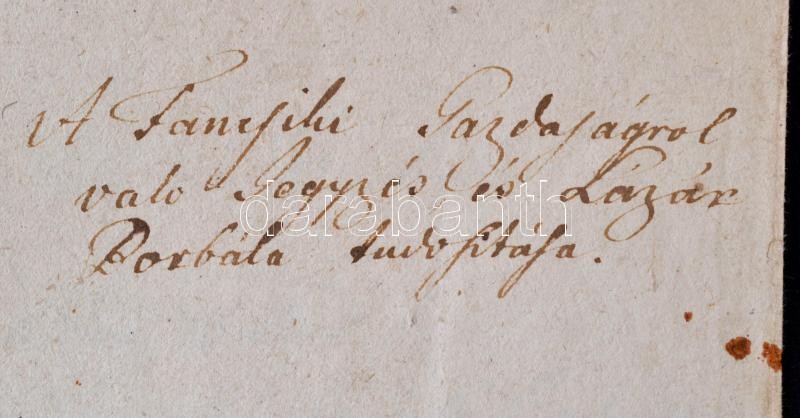 A Fancsiki Gazdaságrol
valo Jegyzés, és Lázár
Borbála tudositása.
darabanth